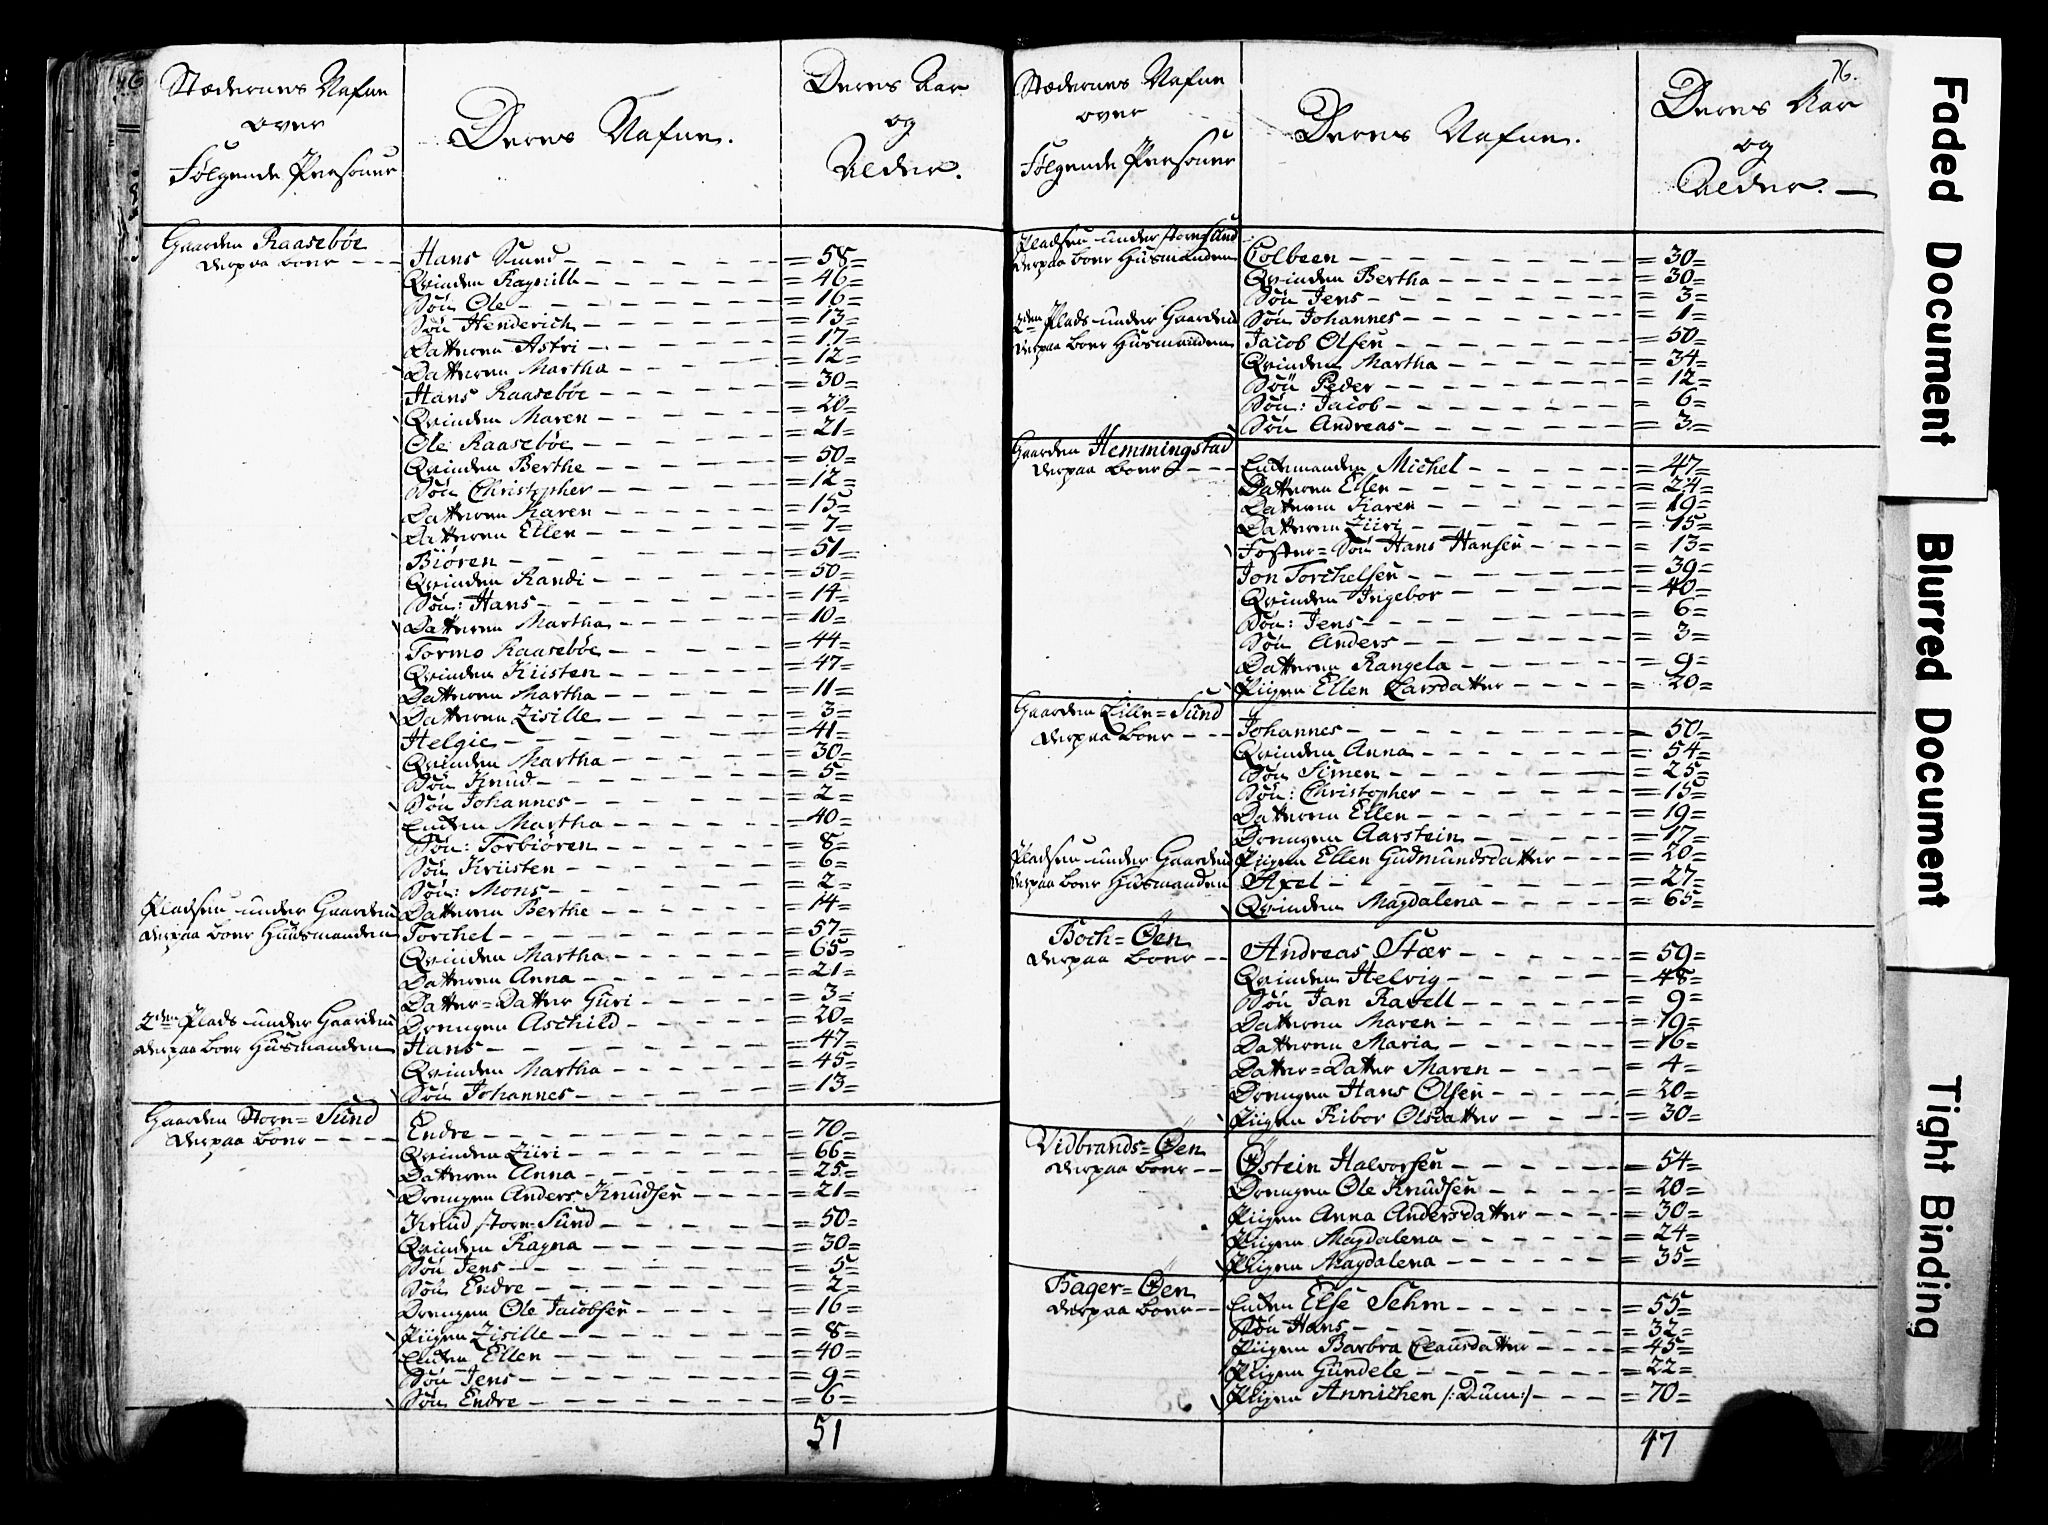 Stædernes Nafne
over
følgende Persohner
Deres Nafne.
Deres Aar
og
Alder.
Gaarden Raasebøe
derpaa boer - - - Hans Smed - - - =58=
Qvinden Ragnille - - - =46=
Søn Ole - - - =16=
Søn Henderich - - - =13=
Datteren Astri - - - =17=
Datteren Martha - - - =12=
Hans Raasebøe - - - =30=
Qvinden Maren - - - =20=
Ole Raasebøe - - - =21=
Qvinden Berthe - - - =50=
Søn Christopher - - - =12=
Datteren Karen - - - =15=
Datteren Ellen - - - =7=
Biøren - - - =51=
Qvinden Randi - - - =50=
Søn: Hans - - - =14=
Datteren Martha - - - =10=
Tormo Raasebøe - - - =44=
Qvinden Kiisten - - - =47=
Datteren Martha - - - =11=
Datteren Zisille - - - =3=
Helgie - - - =41=
Qvinden Martha - - - =30=
Søn Knud - - - =5=
Søn Johannes - - - =2=
Enken Martha - - - =40=
Søn: Torbiøren - - - =8=
Søn Kristen - - - =6=
Søn: Mons - - - =2=
Pladsen under Gaarden Datteren Berthe - - - =14=
derpaa boer Huusmanden Torchel - - - =57=
Qvinden Martha - - - =65=
Datteren Anna - - - =21=
Datter=Datter Guri - - - =3=
2den Plads under Gaarden Drengen Aschild - - - =20=
derpaa boer Husmanden Hans - - - =47=
Qvinden Martha - - - =45=
Søn Johannes - - - =13=
Gaarden Store=Sund
derpaa boer - - - Endre - - - =70=
Qvinden Ziiri - - - =66=
Datteren Anna - - - =25=
Drengen Anders Knudsen - - - =21=
Knud store=Sund - - - =50=
Qvinden Ragna - - - =30=
Søn Jens - - - =5=
Søn Endre - - - =2=
Drengen Ole Jacobsen - - - =16=
Piigen Zisille - - - =8=
Enken Ellen - - - =40=
Søn Jens - - - =9=
Søn Endre - - - =6=
51
76.
Stædernes Nafne
over
følgende Persohner
Deres Nafne.
Deres Aar
og
Alder.
Pladsen under store Sund
derpaa boer Husmanden Colbeen - - - =30=
Qvinden Bertha - - - =30=
Søn Jens - - - =3=
2den Plads under Gaarden Søn Johannes - - - =1=
derpaa boer Husmanden Jacob Olsen - - - =50=
Qvinden Martha - - - =34=
Søn Peder - - - =12=
Søn: Jacob - - - =6=
Søn Andreas - - - =3=
Gaarden Hemmingstad
derpaa boer - - - Enkemanden Michel - - - =47=
Datteren Ellen - - - =24=
Datteren Karen - - - =19=
Datteren Ziiri - - - =15=
Foster=Søn Hans Hansen - - - =13=
Jon Torchelsen - - - =39=
Qvinden Ingebor - - - =40=
Søn: Jens - - - =6=
Søn Anders - - - =3=
Datteren Rangela - - - =9=
Piigen Ellen Larsdatter - - - =20=
Gaarden Lille=Sund
derpaa boer - - - Johannes - - - =50=
Qvinden Anna - - - =54=
Søn Simen - - - =25=
Søn: Christopher - - - =15=
Datteren Ellen - - - =19=
Drengen Aarstein - - - =17=
Pladsen under Gaarden Piigen Ellen Gudmundsdatter - - - =20=
derpaa boer Husmanden Axel - - - =27=
Qvinden Magdalena - - - =65=
Boch=Øen
derpaa boer - - Andreas Stær - - - =59=
Qvinden Helvig - - - =48=
Søn Jan Ravell - - - =9=
Datteren Maren - - - =19=
Datteren Maria - - - =16=
Datter=Datter Maren - - - =4=
Drengen Hans Olsen - - - =20=
Piigen Ribor Olsdatter - - - =30=
Vidbrands=Øen
derpaa boer - - Østein Halvorsen - - - =54=
Drengen Ole Knudsen - - - =20=
Piigen Anna Andersdatter - - - =30=
Piigen Magdalena - - - =24=
Piigen Magdalena - - - =35=
Hager=Øen
derpaa boer - - Enken Else Sehm - - - =55=
Søn Hans - - - =32=
Piigen Barbra Clausdatter - - - =45=
Piigen Gundele - - - =22=
Piigen Annichen /:Dum:/ - - - =70=
47
Faded Document
Blurred Document
Tight Binding